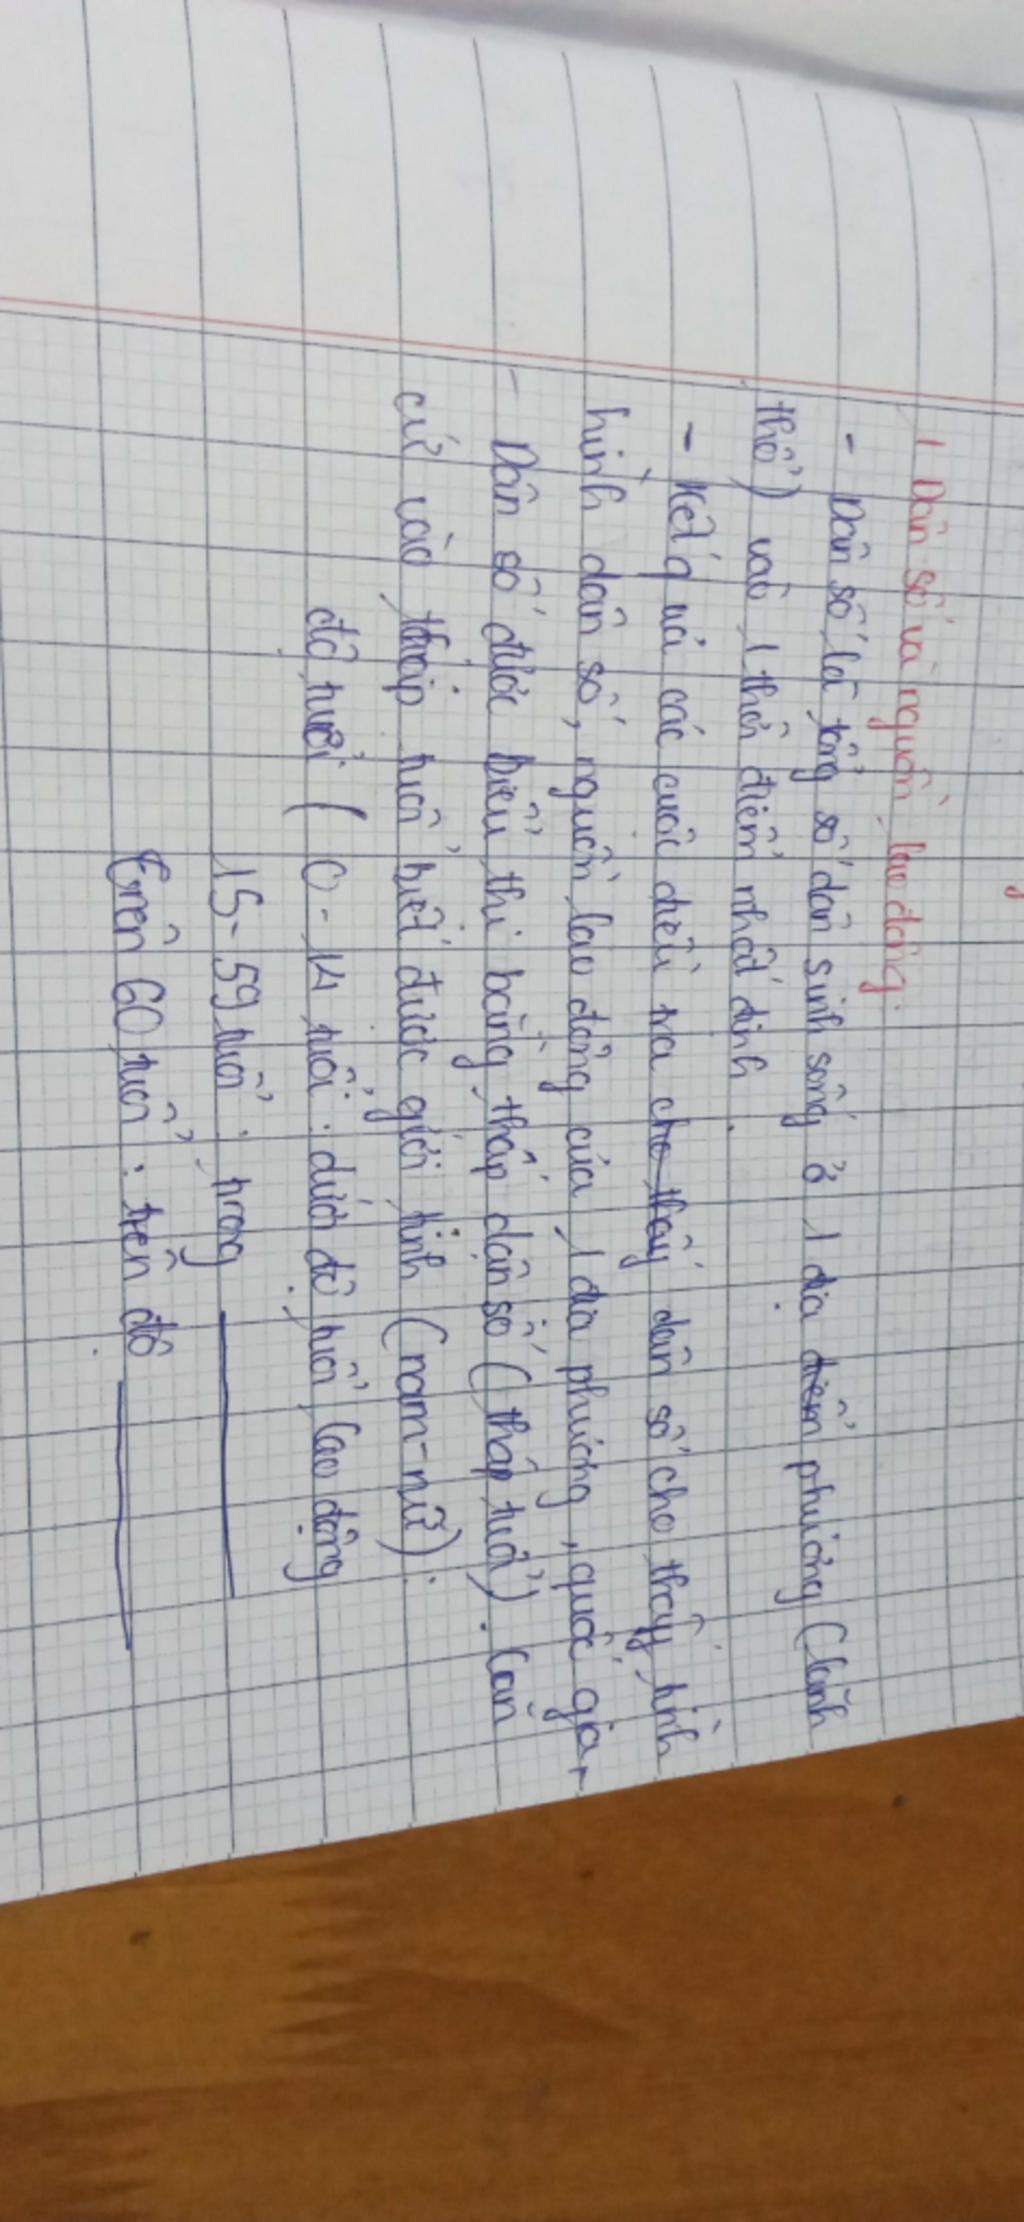 1 Dân số và nguồn lao động.
- Dân số là tổng số dân sinh sống ở 1 địa điểm phương (lãnh
thổ) vào 1 thời điểm nhất định.
- Kết quả các cuộc điều tra cho thấy dân số cho thấy tình
hình dân số, nguồn lao động của 1 địa phương, quốc gia,
- Dân số được biểu thị bằng tháp dân số (tháp tuổi). Căn
cứ vào tháp tuổi biết được giới tính (nam-nữ).
độ tuổi ( 0 - 14 tuổi: dưới độ tuổi lao động
15 - 59 tuổi: trong
trên 60 tuổi: trên độ